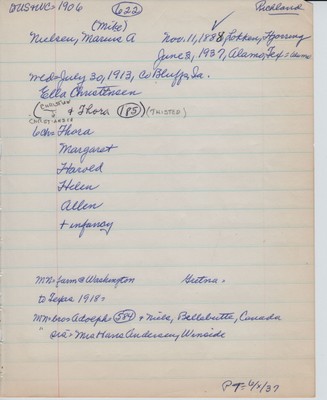 DUS+NC=1906 622 Richland
(Mike)
Nielsen, Marius A Nov. 11, 1888, Lokken, Hjorring
June 3, 1937, Alamo, Tex=
Wed=July 30, 1913, Co Bluffs, Ia.
Ella Christensen
(CHRISTIAN & Thora 185 (THISTED)
6ch=Thora
Margaret
Harold
Helen
Allen
+ infancy
MN=farm@Washington Gretna.
to Texas 1918=
MN=bros Adolph= 584 + Niels, Bellebutte, Canada
" sis= Mrs Hans Andersen, Winside
PT=6/x/37